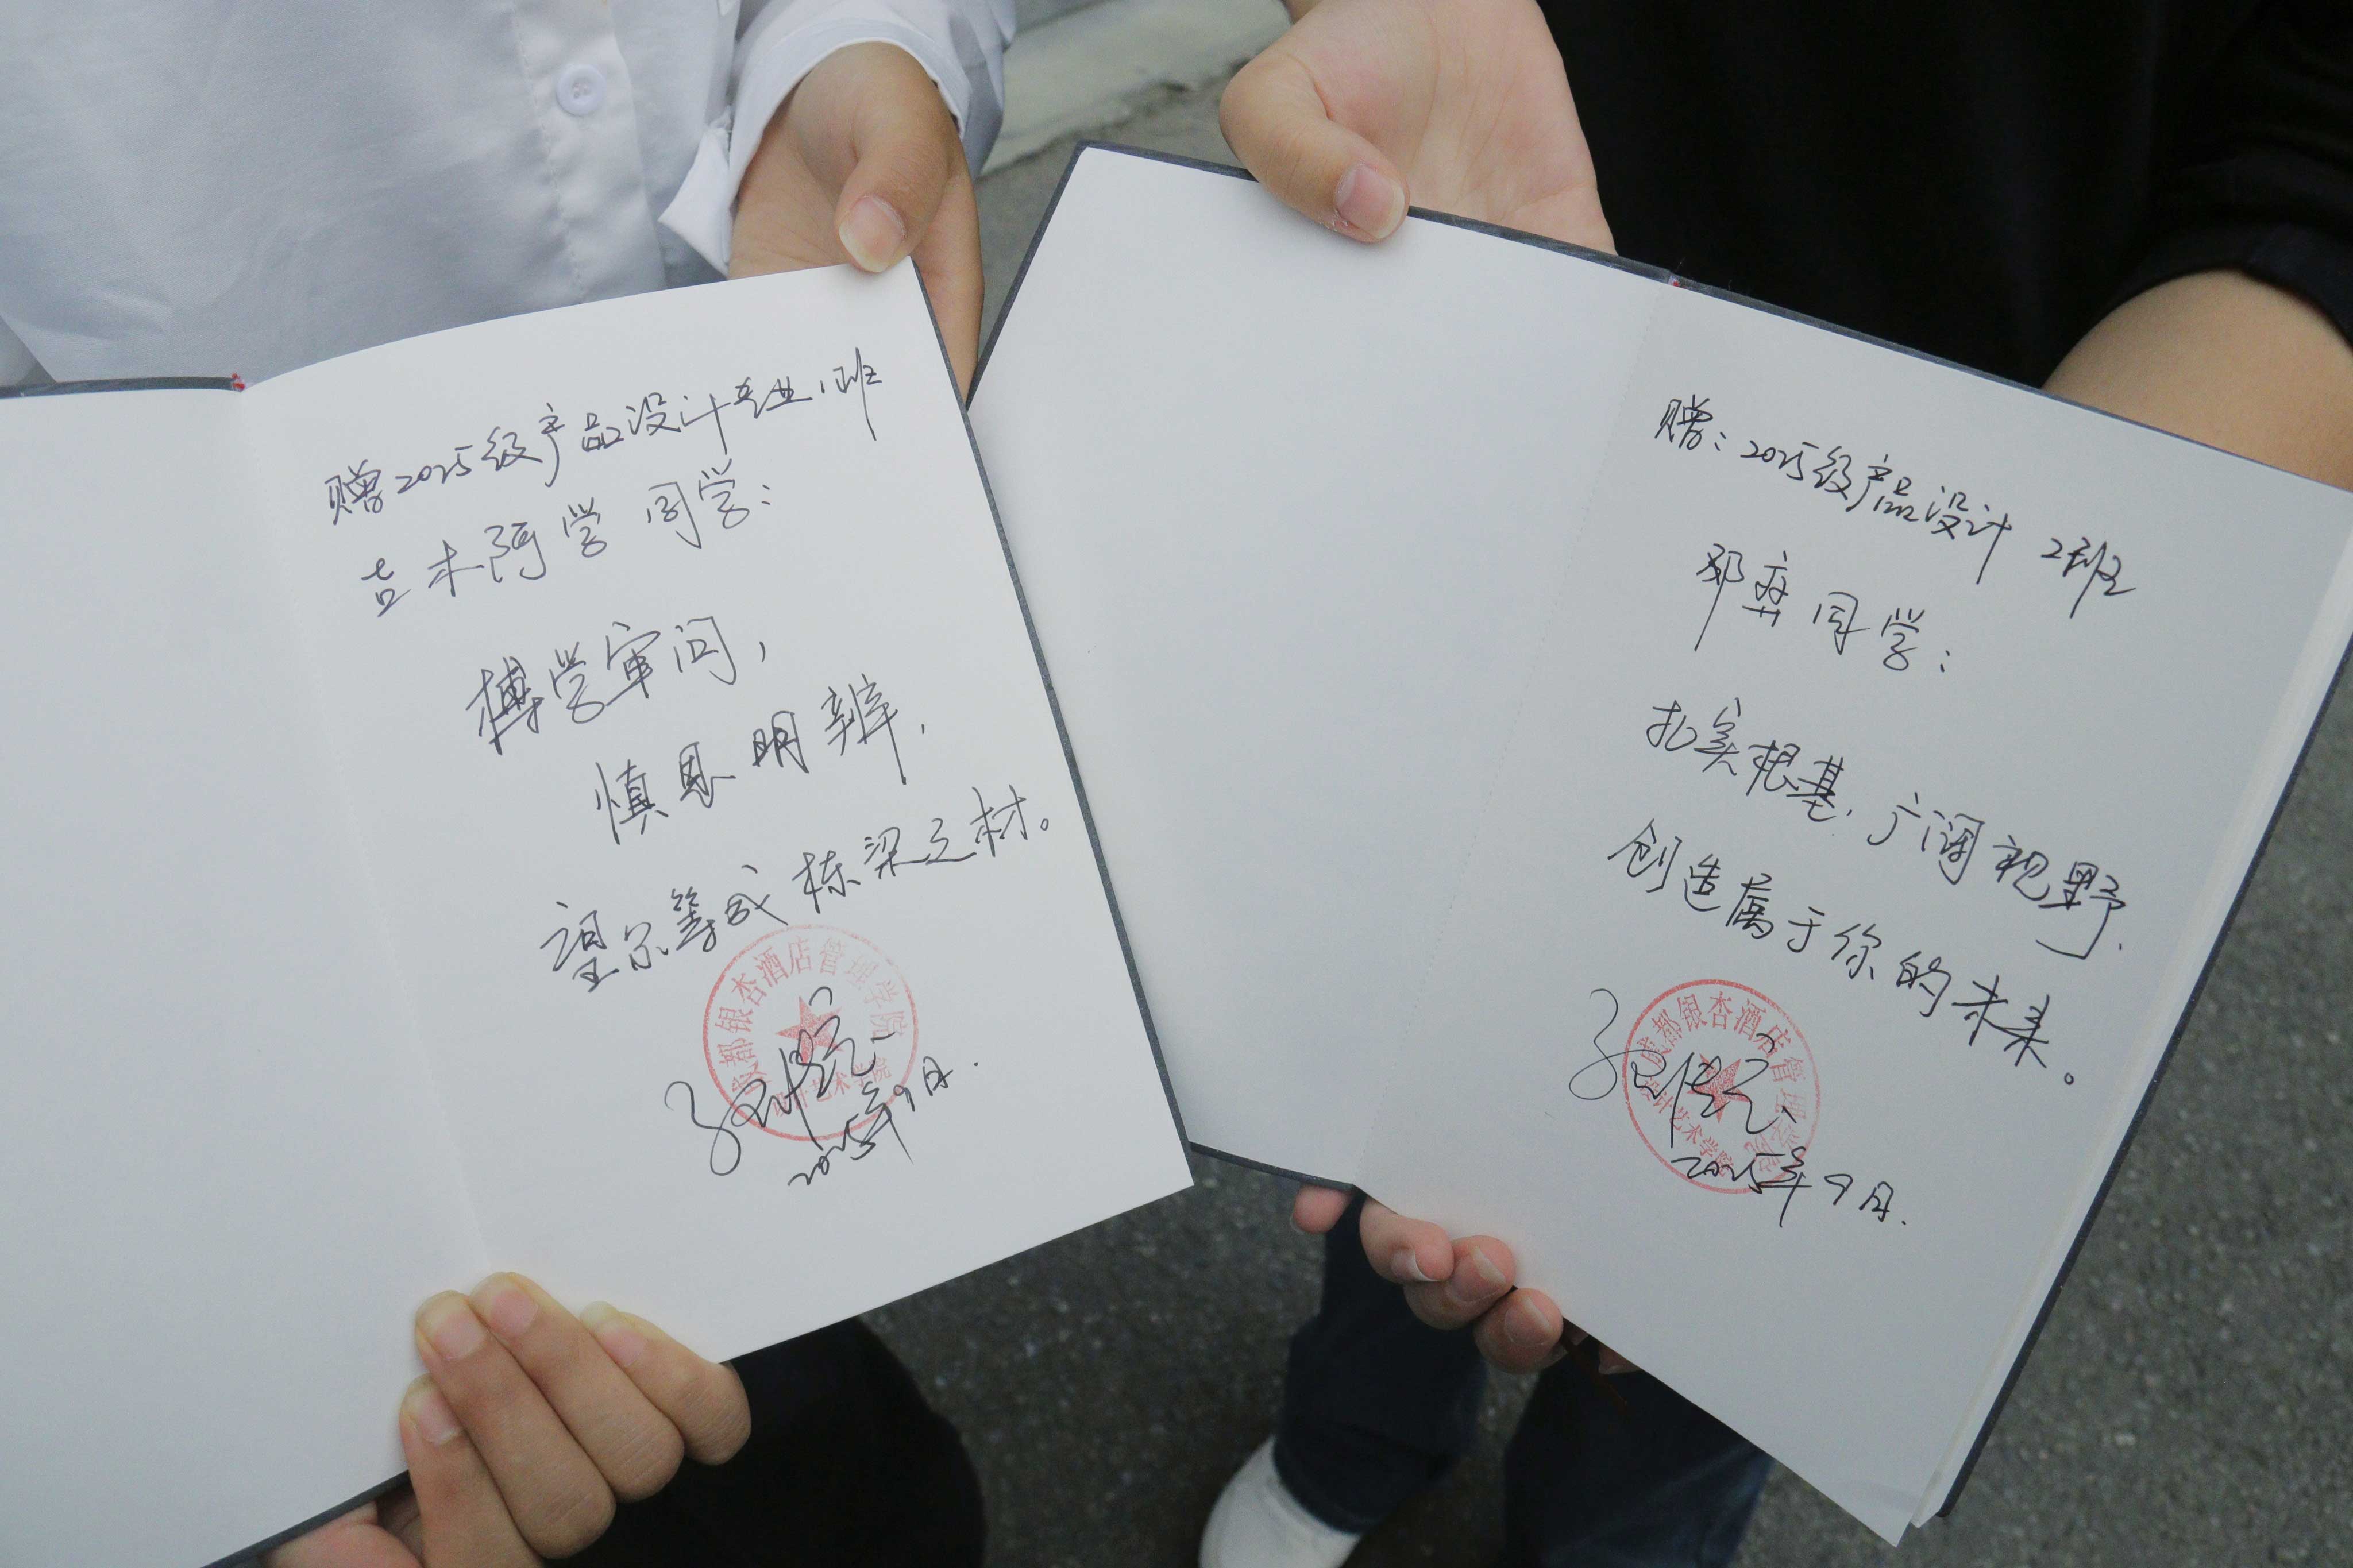 赠2025级产品设计专业1班
吉木阿学 同学：
博学审问，
慎思明辨，
望尔等成栋梁之材。
成都银杏酒店管理学院
设计艺术学院
2025年9月.
赠：2025级产品设计 2班
邓弈 同学：
扎实根基，广阔视野，
创造属于你的未来。
成都银杏酒店管理学院
设计艺术学院
2025年9月.